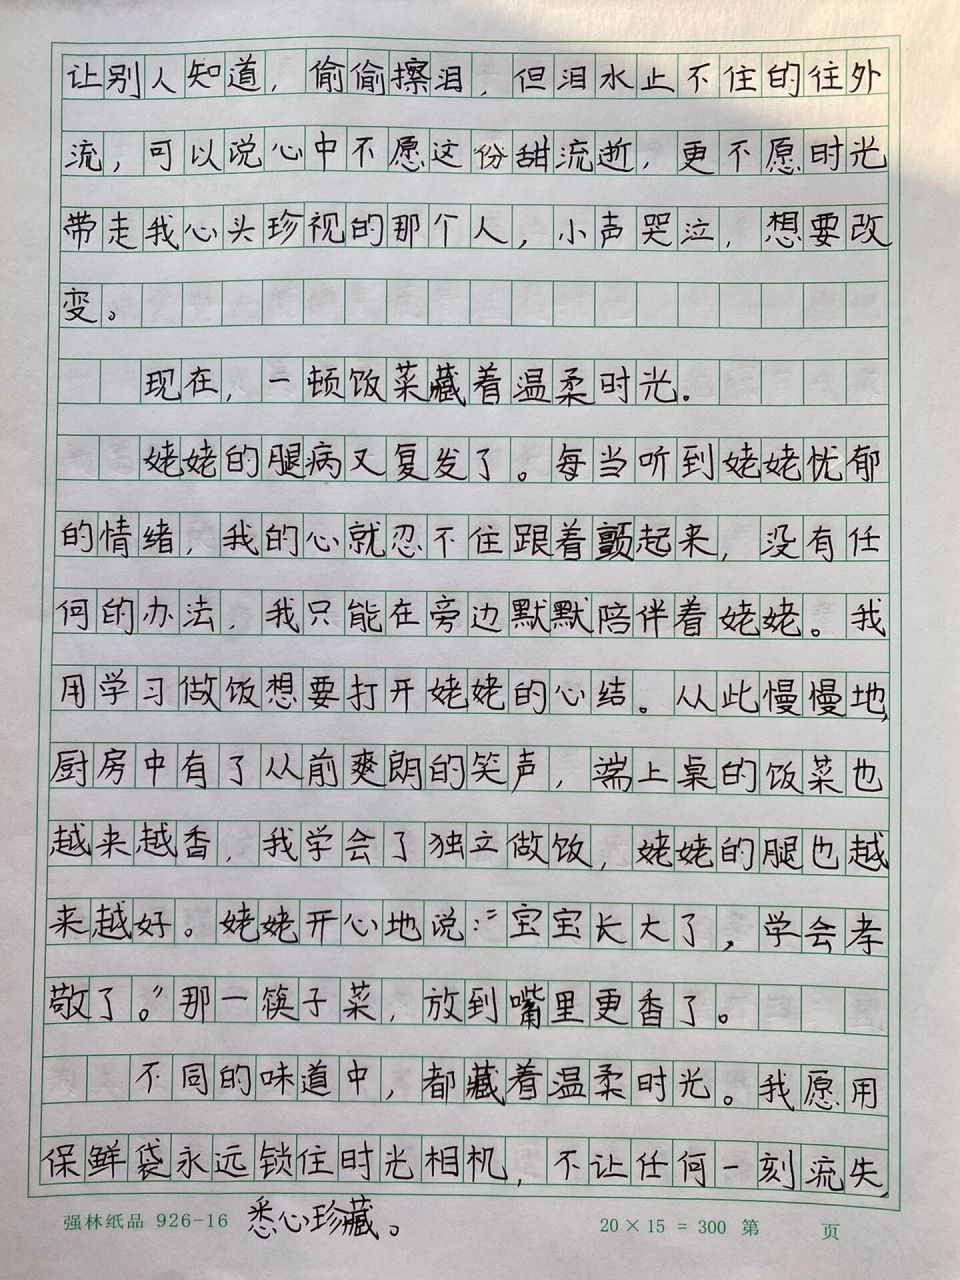 让别人知道，偷偷擦泪，但泪水止不住的往外
流，可以说心中不愿这份甜流逝，更不愿时光
带走我心头珍视的那个人，小声哭泣，想要改
变。
现在，一顿饭菜藏着温柔时光.
姥姥的腿病又复发了。每当听到姥姥忧郁
的情绪，我的心就忍不住跟着颤起来，没有任
何的办法，我只能在旁边默默陪伴着姥姥。我
用学习做饭想要打开姥姥的心结。从此慢慢地，
厨房中有了从前爽朗的笑声，端上桌的饭菜也
越来越香，我学会了独立做饭，姥姥的腿也越
来越好。姥姥开心地说：“宝宝长大了，学会孝
敬了。”那一筷子菜，放到嘴里更香了。
不同的味道中，都藏着温柔时光。我愿用
保鲜袋永远锁住时光相机，不让任何一刻流失，
悉心珍藏。
强林纸品 926-16 20×15=300 第 页